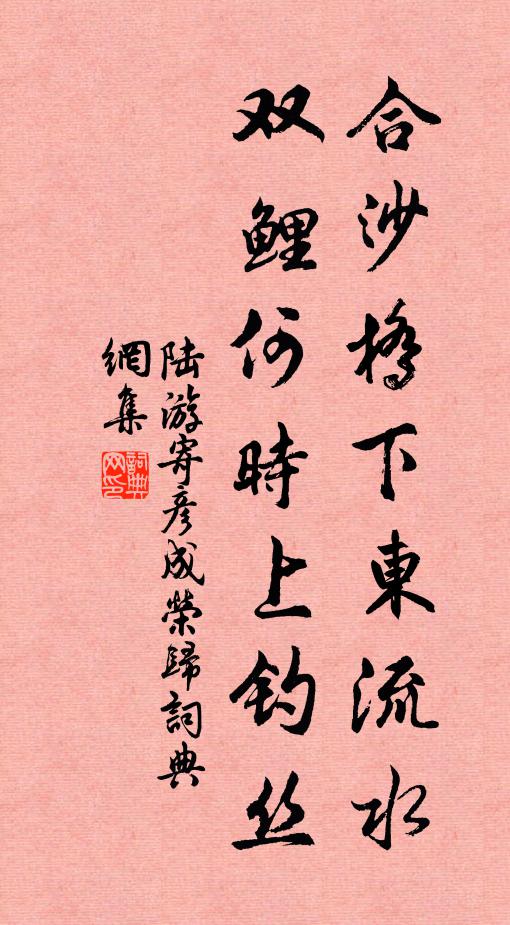 合沙橋下東流水
双鲤何時上钓丝
陆游寄彦成榮歸詞典
網集
詞典
网印